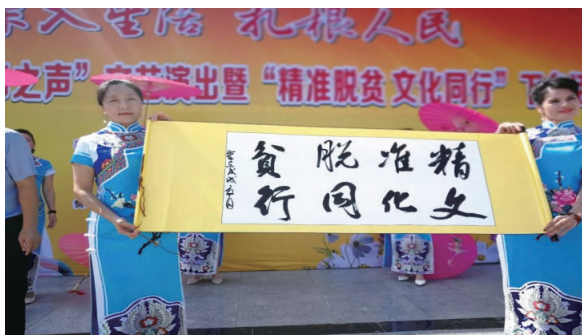 深入生活 扎根人民
之声”文艺演出暨“精准脱贫 文化同行”下
精准脱貧
文化同行